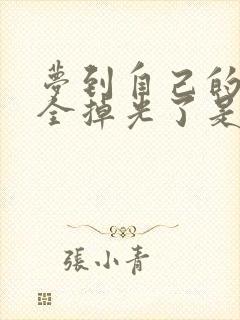 夢到自己的
全掉光了是
張小青